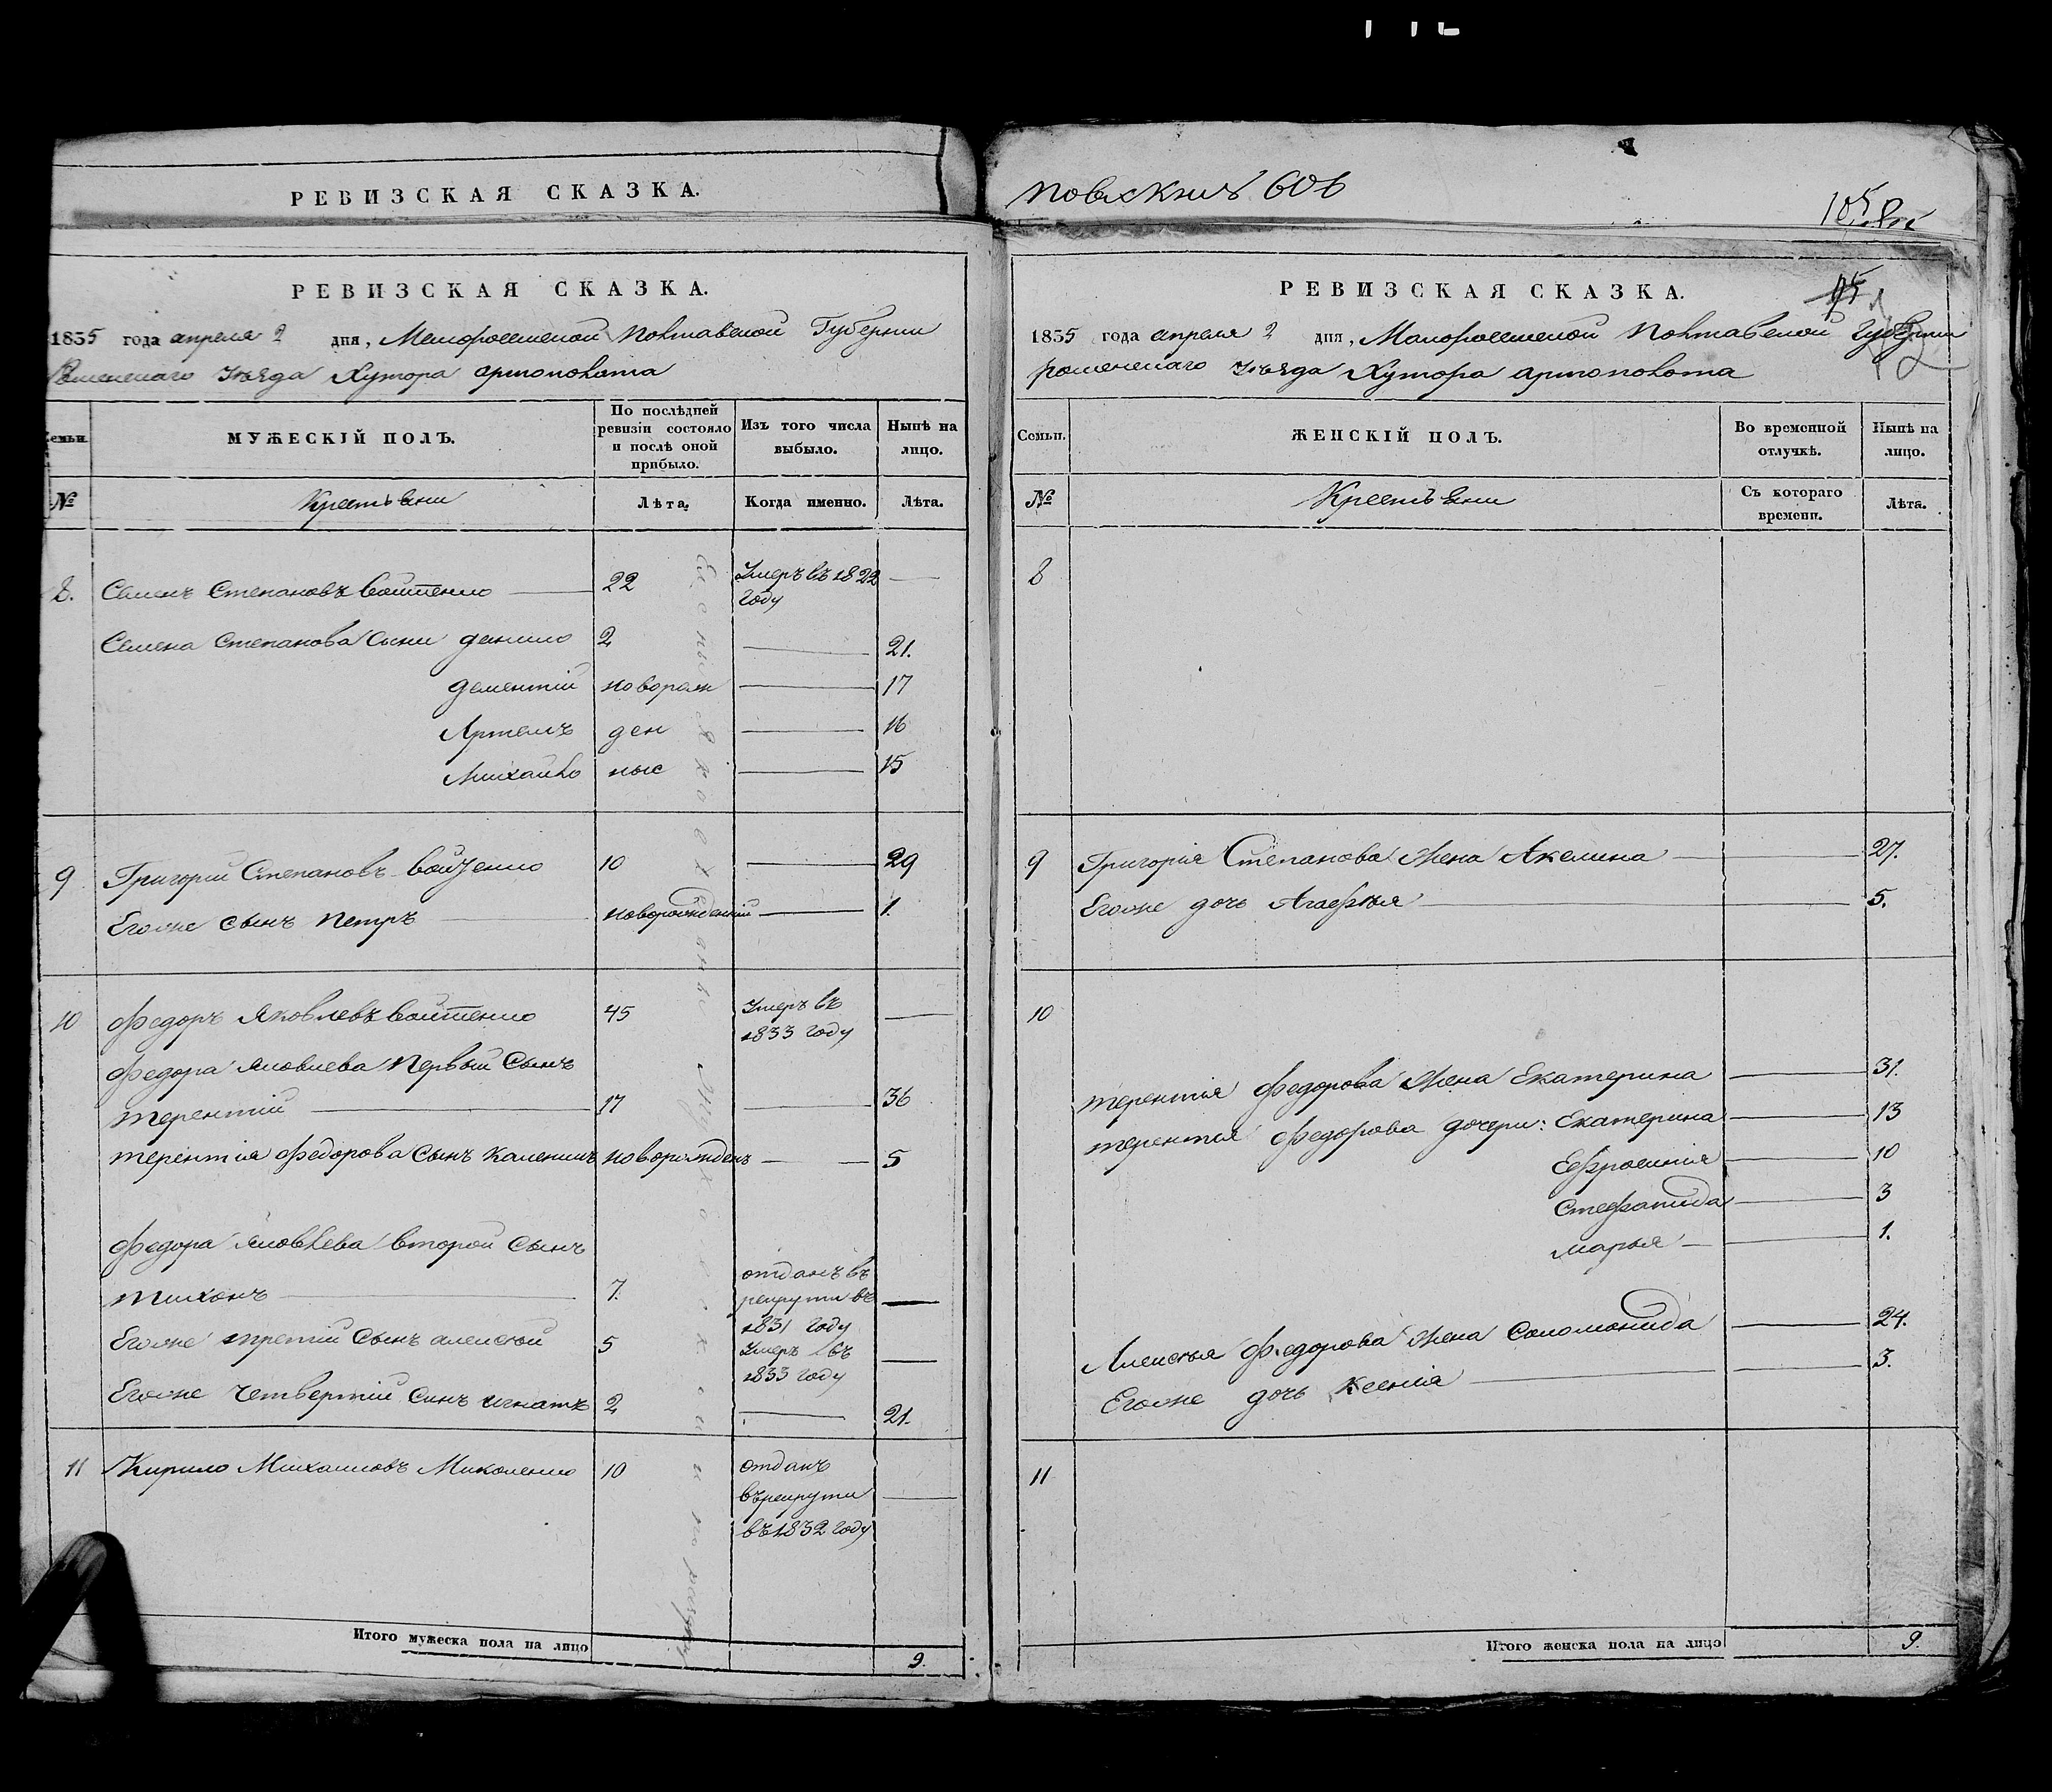 РЕВИЗСКАЯ СКАЗКА.
РЕВИЗСКАЯ СКАЗКА.
1835 года апреля 2 дня, Малоросѣиской Полтавской Губернии
Роменскаго уѣзда Хутора артополота
Семьи.
МУЖЕСКІЙ ПОЛЪ.
По послѣдней ревизіи состояло и послѣ оной прибыло.
Изъ того числа выбыло.
Нынѣ на лицо.
№
Крестьяни
Лѣта.
Когда именно.
Лѣта.
8. Семенъ Степановъ Войтенко 22 Умеръ въ 1822 Году
Семена Степанова Сыни данило 2 21.
дементій новорож 17
Артемъ ден 16
Михайло ные 15
9 Григорій Степановъ Войтенко 10 29
Егоже Сынъ Петръ новорожденній 1.
10 Федоръ Яковлевъ Войтенко 45 Умеръ въ 1833 году
Федора Яковлева Первый Сынъ
терентій 17 36
терентія Федорова Сынъ каленикъ новорожденъ 5
Федора Яковлева второй Сынъ
тихонъ 7. отданъ въ рекрути въ 1831 году
Егоже третій Сынъ алексѣй 5 Умеръ въ 1833 году
Егоже четвертій Синъ игнатъ 2 21.
11 Кирило Михаиловъ Миколенко 10 отданъ въ рекрути въ 1832 году
Итого мужеска пола на лицо 9.
105
РЕВИЗСКАЯ СКАЗКА.
1835 года апреля 2 дня, Малоросѣиской Полтавской Губернии
роменскаго уѣзда Хутора артополота
Семьи.
ЖЕНСКІЙ ПОЛЪ.
Во временной отлучкѣ.
Нынѣ на лицо.
№
Крестьяни
Съ котораго времени.
Лѣта.
8
9 Григорія Степанова Жена Акелина 27.
Егоже дочь Агафья 5.
10
терентія Федорова Жена Екатерина 31.
терентія Федорова дочери: Екатерина 13
Ефросинія 10
Стефанида 3
марья 1.
Алексѣя Федорова Жена Соломонида 24.
Егоже дочь Ксенія 3.
11
Итого женска пола на лицо 9.